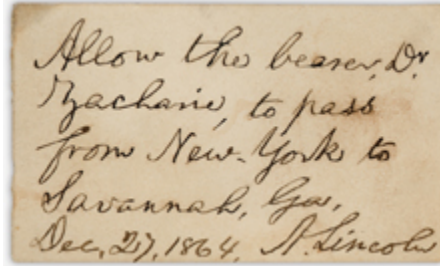 Allow the bearer, Dr.
Zacharie, to pass
from New-York to
Savannah, Ga.
Dec. 27, 1864. A. Lincoln